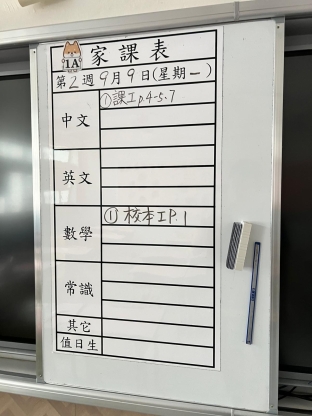 1A 家課表
第2週9月9日(星期一)
中文 ①課工p.4-5.7
英文
數學 ①校本工P.1
常識
其它
值日生